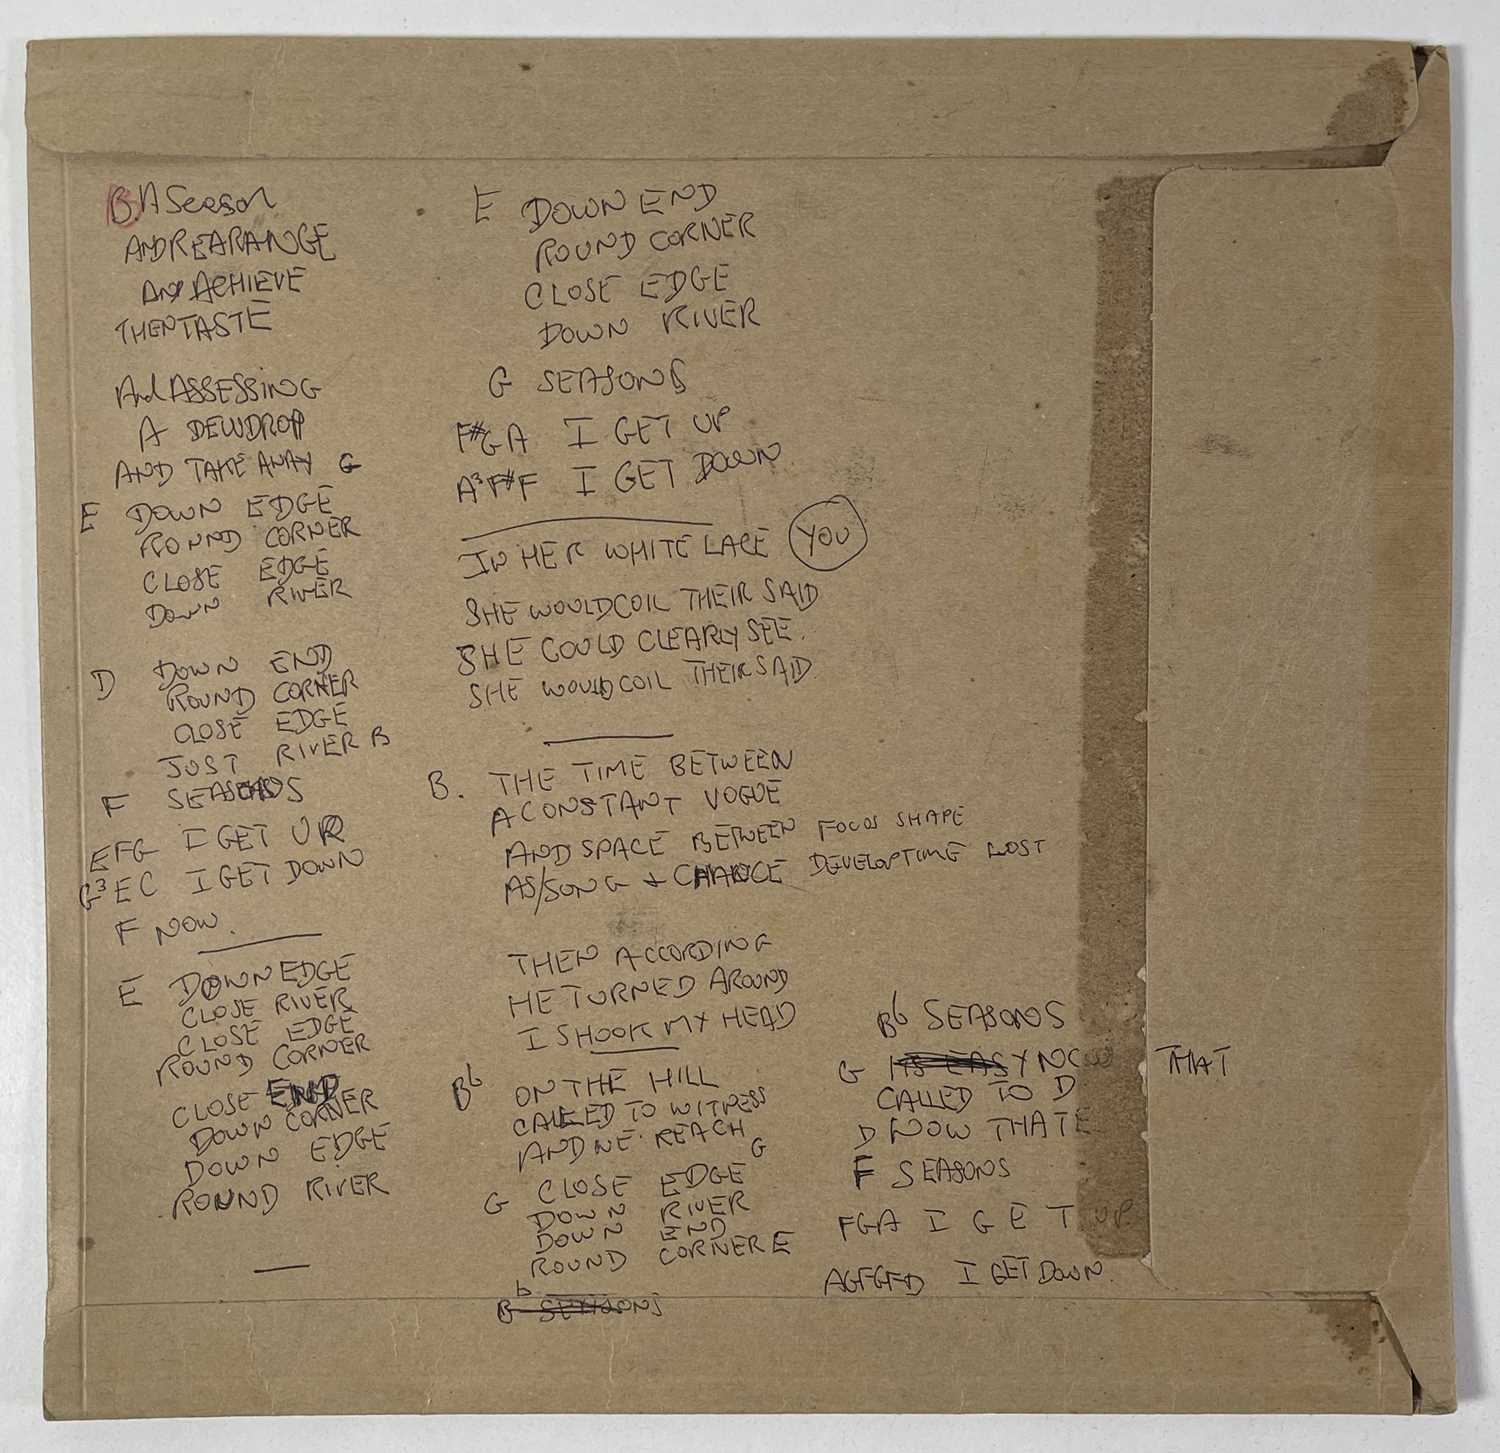 B A Season
AND REARANGE
AND ACHIEVE
THEN TASTE
And ASSESSING
A DEWDROP
AND TAKE AWAY G
E DOWN EDGE
ROUND CORNER
CLOSE EDGE
DOWN RIVER
D DOWN END
ROUND CORNER
CLOSE EDGE
JUST RIVER B
F SEASONS
EFG I GET UP
G3 E C I GET DOWN
F NOW.
E DOWN EDGE
CLOSE RIVER
CLOSE EDGE
ROUND CORNER
CLOSE END
DOWN CORNER
DOWN EDGE
ROUND RIVER
E DOWN END
ROUND CORNER
CLOSE EDGE
DOWN RIVER
G SEASONS
F# G A I GET UP
A3 F# F I GET DOWN
IN HER WHITE LACE YOU
SHE WOULD COIL THEIR SAID
SHE COULD CLEARLY SEE.
SHE WOULD COIL THEIR SAID.
B. THE TIME BETWEEN
A CONSTANT VOGUE
AND SPACE BETWEEN FOCUS SHAPE
AS/SONG + CHANCE DEVELOPTIME LOST
THEN ACCORDING
HE TURNED AROUND
I SHOOK MY HEAD
Bb ON THE HILL
CALLED TO WITNESS
AND WE REACH G
G CLOSE EDGE
DOWN RIVER
DOWN END
ROUND CORNER E
Bb SEASONS
Bb SEASONS
G ITS EASY NOW THAT
CALLED TO D
D NOW THAT E
F SEASONS
FGA I GET UP
AGFGFD I GET DOWN.